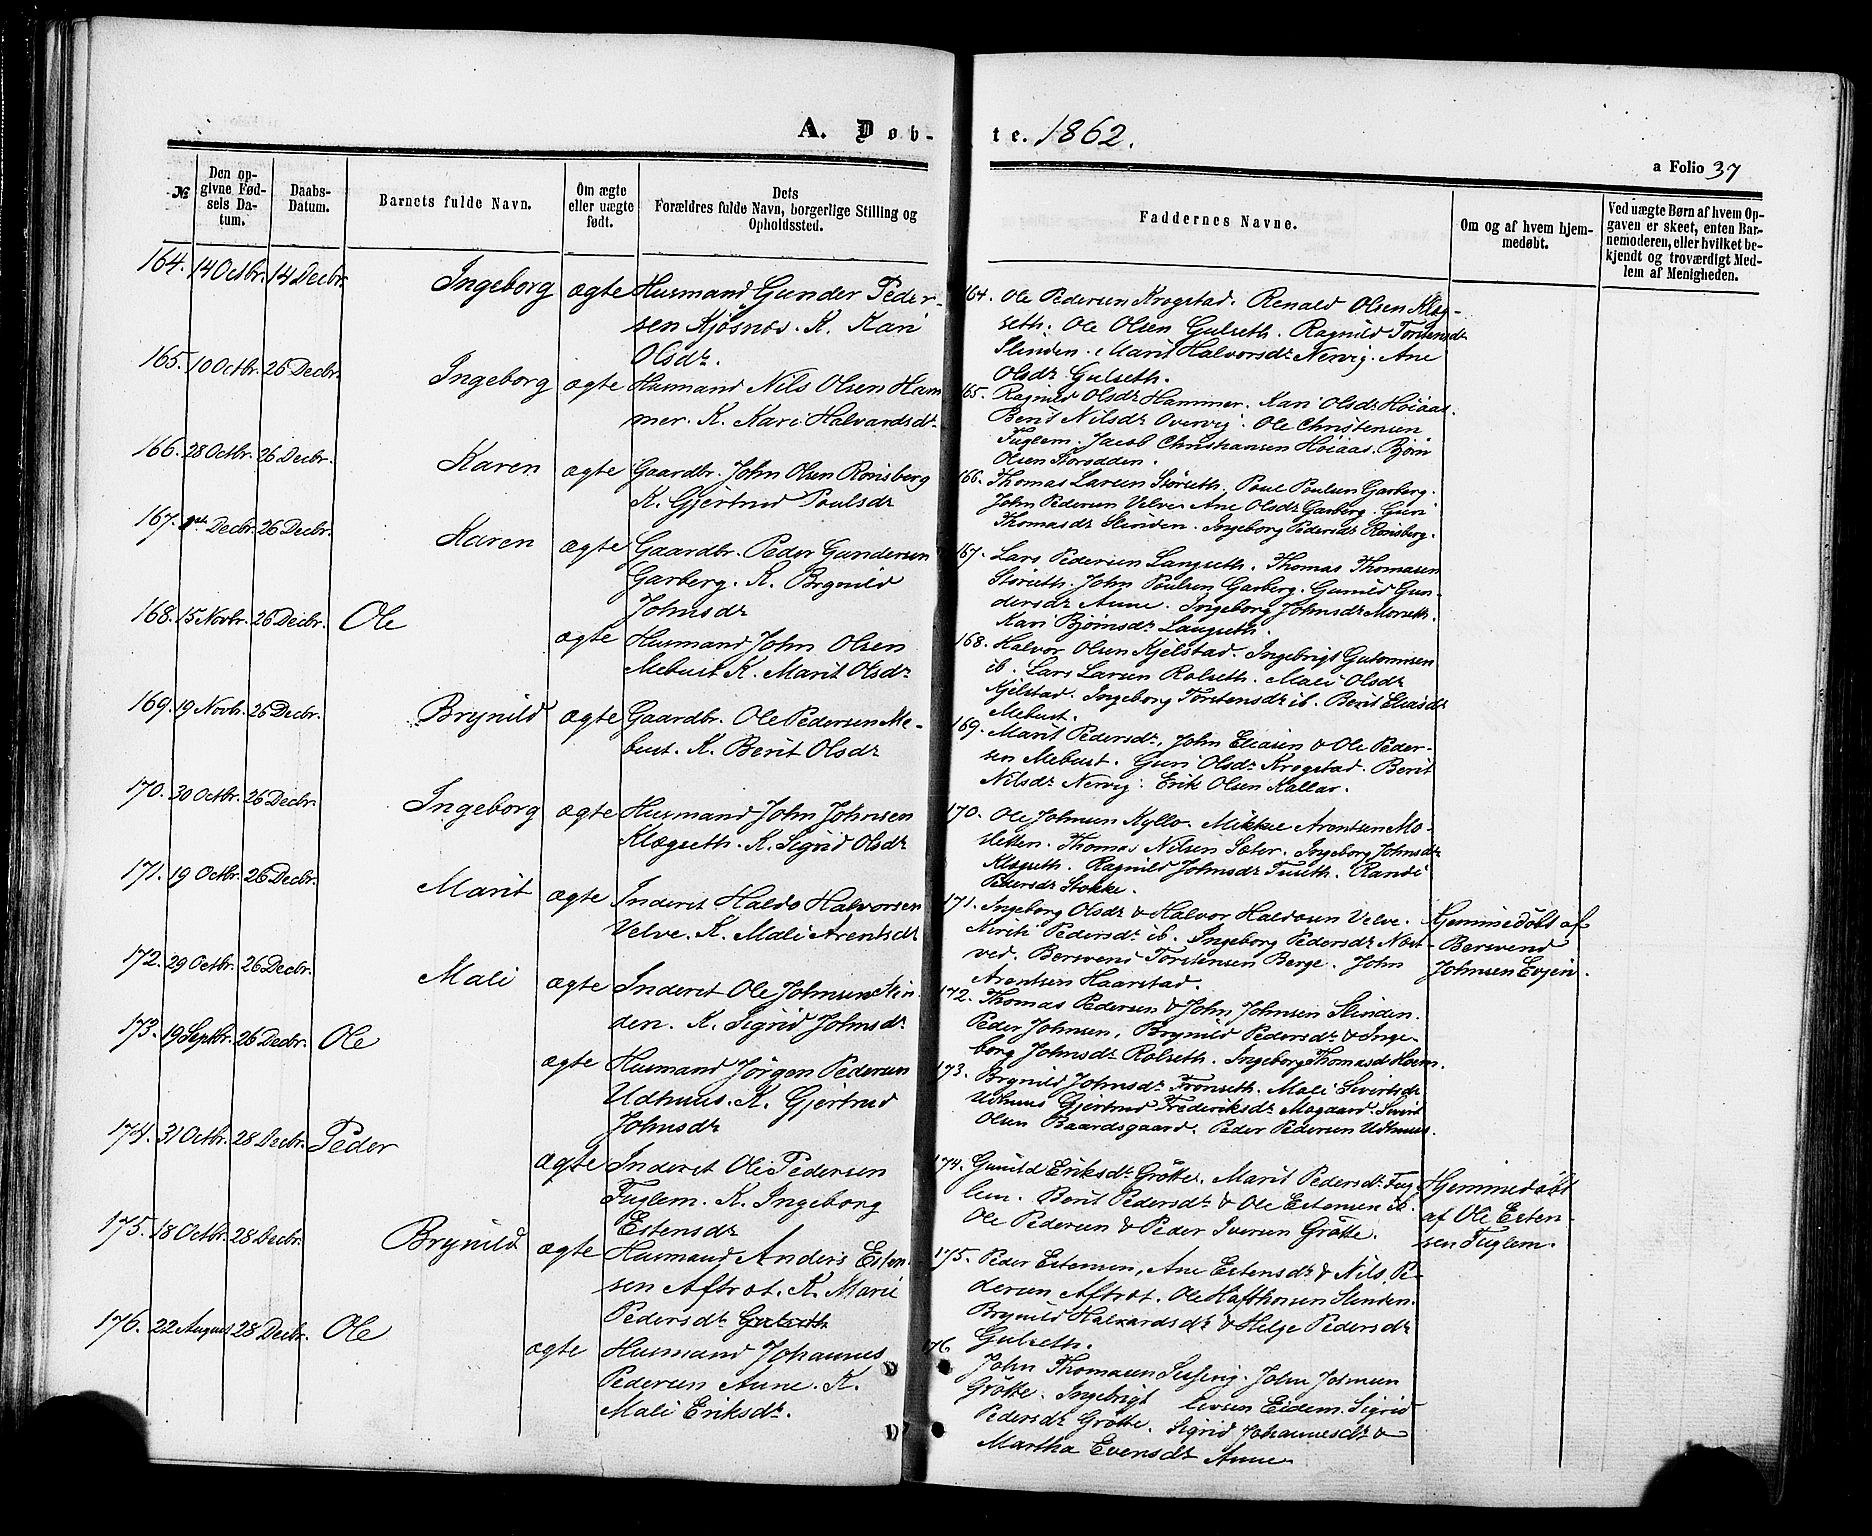 A. Døb-
te. 1862.
a Folio 37
№
Den op-
givne Fød-
sels Da-
tum.
Daabs-
Datum.
Barnets fulde Navn.
Om ægte
eller uægte
født.
Dets
Forældres fulde Navn, borgerlige Stilling og
Opholdssted.
Faddernes Navne.
Om og af hvem hjem-
medøbt.
Ved uægte Børn af hvem Op-
gaven er skeet, enten Bar-
nemoderen, eller hvilket be-
kjendt og troværdigt Med-
lem af Menigheden.
164. 14 Octbr. 14 Decbr. Ingeborg ægte Husmand Gunder Peder-
sen Kjøsnæs. K. Kari
Olsdr.
165. 10 Octbr. 26 Decbr. Ingeborg ægte Husmand Nils Olsen Ham
mer. K. Kari Halvardsdr
166. 28 Octbr. 26 Decbr. Karen ægte Gaardbr. John Olsen Rønsberg
K. Gjertrud Poulsdr
167. 1ste Decbr. 26 Decbr. Karen ægte Gaardbr. Peder Gundersen
Garberg. K. Brynild
Johnsdr
168. 15 Novbr. 26 Decbr. Ole ægte Husmand John Olsen
Mebust K. Marit Olsdr
169. 19 Novbr. 26 Decbr. Brynild ægte Gaardbr. Ole Pedersen Me-
bust. K. Berit Olsdr
170. 30 Octbr. 26 Decbr. Ingeborg ægte Husmand John Johnsen
Klægseth. K. Sigrid Olsdr
171. 19 Octbr. 26 Decbr. Marit ægte Inderst Haldo Halvorsen
Velve. K. Mali Arentsdr
172. 29 Octbr. 26 Decbr. Mali ægte Inderst Ole Johnsen Slin-
den. K. Sigrid Johnsdr
173. 19 Septbr. 26 Decbr. Ole ægte Husmand Jørgen Pedersen
Udhuus. K. Gjertrud
Johnsdr
174. 31 Octbr. 28 Decbr. Peder ægte Inderst Ole Pedersen
Fuglem. K. Ingeborg
Estensdr
175. 18 Octbr. 28 Decbr. Brynild ægte Husmand Anders Esten-
sen Aftrøt. K. Marit
Pedersdr Gulseth
176. 22 August 28 Decbr. Ole ægte Husmand Johannes
Pedersen Aune. K.
Mali Eriksdr.
164. Ole Pedersen Krogstad. Renald Olsen Klæg-
seth. Ole Olsen Gulseth. Ragnild Torstensdr
Slinden. Marit Halvorsdr Nervig. Ane
Olsdr Gulseth.
165. Ragnild Olsdr Hammer. Kari Olsdr Høiaas.
Berit Nilsdr Overvig. Ole Christensen
Fuglem. Jacob Christiansen Høiaas. Bjørn
Olsen Storodden.
166. Thomas Larsen Størseth. Poul Poulsen Garberg.
John Pedersen Velve. Ane Olsdr Garberg. Guri
Thomasdr Slinden. Ingeborg Pedersdr Rønsberg.
167. Lars Pedersen Langseth. Thomas Thomasen
Størseth. John Poulsen Garberg. Gunild Gun-
dersdr Aune. Ingeborg Johnsdr Morseth.
Kari Bjørnsdr Langseth.
168. Halvor Olsen Kjelstad. Ingebrigt Guttormsen
ib. Lars Larsen Rolseth. Mali Olsdr
Kjelstad. Ingeborg Torstensdr ib. Berit Eliasdr
Mebust.
169. Marit Pedersdr, John Eliasen & Ole Peder-
sen Mebust. Guri Olsdr Krogstad. Berit
Nilsdr Nervig. Erik Olsen Kallar.
170. Ole Johnsen Kyllo. Mikkel Arentsen Mo-
sletten. Thomas Nilsen Sæter. Ingeborg Johnsdr
Klægseth. Ragnild Johnsdr Tuseth. Randi
Pedersdr Stokke.
171. Ingeborg Olsdr & Halvor Haldosen Velve.
Mereti Pedersdr ib. Ingeborg Pedersdr Næs-
ved. Bersvend Torstensen Berge. John
Arentsen Haarstad.
Hjemmedøbt af
Bersvend
Johnsen Evjen.
172. Thomas Pedersen & John Johnsen Slinden.
Peder Johnsen, Brynild Pedersdr & Inge-
borg Johnsdr Rolseth. Ingeborg Thomasdr Moen.
173. Brynild Johnsdr Trønseth. Mali Sivertsdr
Udhuus Gjertrud Frederiksdr Mogaard. Sivert
Olsen Baardsgaard. Peder Pedersen Udhuus.
174. Gunild Eriksdr Grøtte. Marit Pedersdr Fug-
lem. Berit Pedersdr & Ole Estensen ib.
Ole Pedersen & Peder Iversen Grøtte.
Hjemmedøbt
af Ole Esten-
sen Fuglem.
175. Peder Estensen, Ane Estensdr & Nils Pe-
dersen Aftrøt. Ole Hafthorsen Slinden.
Brynild Halvardsdr & Helge Pedersdr
Gulseth.
176 John Thomasen Sessing. John Johnsen
Grøtte. Ingebrigt Iversen Eidem. Sigrid
Pedersdr Grøtte. Sigrid Johannesdr &
Martha Evensdr Aune